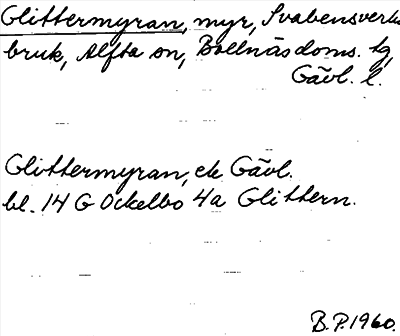 Glittermyran, myr, Svabensverks
bruk, Alfta sn, Bollnäs doms. tg,
Gävl. l.
Glittermyran, ek Gävl.
bl. 14 G Ockelbo 4a Glittern.
B.P. 1960.